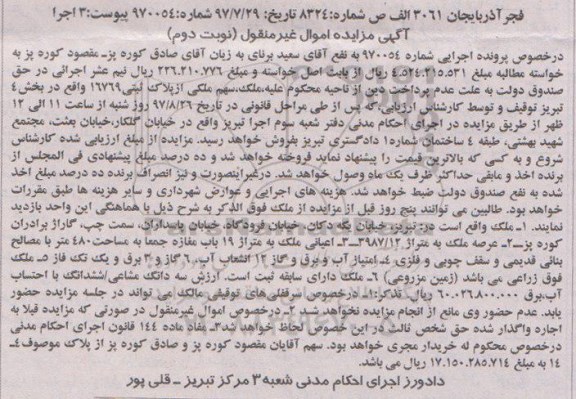 فجر آذربایجان ۳۰۶۱ الف ص شماره: ۸۳۲۴ تاریخ: ۹۷/۷/۲۹ شماره: ۹۷۰۰۵۴ پیوست: ۳ اجرا
آگهی مزایده اموال غیرمنقول (نوبت دوم)
درخصوص پرونده اجرایی شماره ۹۷۰۰۵۴ به نفع آقای سعید برنای به زیان آقای صادق کوره پزـ مقصود کوره پز به
خواسته مطالبه مبلغ ۴.۵۲۴.۲۱۵.۵۳۱ ریال از بابت اصل خواسته و مبلغ ۲۲۶.۲۱۰.۷۷۶ ریال نیم عشر اجرائی در حق
صندوق دولت به علت عدم پرداخت دین از ناحیه محکوم علیه، ملک، سهم ملکی از پلاک ثبتی ۱۶۷۶۹ واقع در بخش ۴
تبریز توقیف و توسط کارشناس ارزیابی، که پس از طی مراحل قانونی در تاریخ ۹۷/۸/۲۶ روز شنبه از ساعت ۱۱ الی ۱۲
ظهر از طریق مزایده در اجرای احکام مدنی دفتر شعبه سوم اجرا تبریز واقع در خیابان گلکار، خیابان بعثت، مجتمع
شهید بهشتی، طبقه ۴ ساختمان شماره ۱ دادگستری تبریز بفروش خواهد رسید. مزایده از مبلغ ارزیابی شده کارشناس
شروع و به کسی که بالاترین قیمت را پیشنهاد نماید فروخته خواهد شد و ده درصد مبلغ پیشنهادی فی المجلس از
برنده اخذ و مابقی حداکثر ظرف یک ماه وصول خواهد شد. درغیراینصورت و نیز انصراف برنده ده درصد مبلغ اخذ
شده به نفع صندوق دولت ضبط خواهد شد. هزینه های اجرایی و عوارض شهرداری و سایر هزینه ها طبق مقررات
خواهد بود. طالبین می توانند پنج روز قبل از مزایده از ملک فوق الذکر به شرح ذیل با هماهنگی این واحد بازدید
نمایند. ۱ـ ملک واقع است در: تبریز، خیابان یگه دکان، خیابان فرودگاه، خیابان سپیداران، سمت چپ، گاراژ برادران
کوره پزـ۲ـ عرصه ملک به متراژ ۳۹۸۷/۱۲ـ۳ـ اعیانی ملک به متراژ ۱۹ باب مغازه جمعا به مساحت ۴۸۰ متر با مصالح
بنائی قدیمی و سقف چوبی و فلزی، ۴ـ امتیاز آب و برق و گاز ۱۲ انشعاب آب، ۶ گاز و ۲ برق و یک تک فاز ۵ـ ملک
فوق زراعی می باشد (زمین مزروعی) ۶ـ ملک دارای سابقه ثبت است. ارزش سه دانگ مشاعی/ششدانگ با احتساب
آب، برق ۶۰.۰۲۶.۸۰۰.۰۰۰ ریال. تذکر: ۱ـ درخصوص سرقفلی های توقیفی، مالک می تواند در جلسه مزایده حضور
یابد. عدم حضور وی مانع از انجام مزایده نخواهد شد. ۲ـ درخصوص اموال غیرمنقول در صورتی که مزایده قبلا به
اجاره واگذار شده حق شخص ثالث در این خصوص لحاظ خواهد شد. ۳ـ مفاد ماده ۱۴۴ قانون اجرای احکام مدنی
درخصوص محکوم له خریدار مجری خواهد بود. سهم آقایان مقصود کوره پز و صادق کوره پز از پلاک موصوف ۴ـ
۱۴ به مبلغ ۱۷.۱۵۰.۲۸۵.۷۱۴ ریال می باشد.
دادورز اجرای احکام مدنی شعبه ۳ مرکز تبریز ـ قلی پور